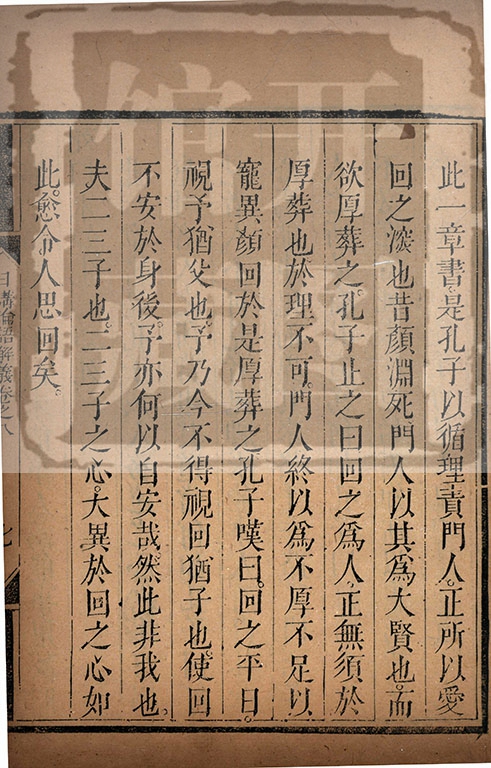 此一章書是孔子以循理責門人。正所以愛
回之深也昔顏淵死門人以其爲大賢也而
欲厚葬之。孔子止之曰回之爲人正無須於
厚葬也於理不可。門人終以爲不厚不足以
寵異顏回於是厚葬之孔子嘆曰。回之平日。
視予猶父也。予乃今不得視回猶子也。使回
不安於身後。予亦何以自安哉。然此非我也。
夫二三子也。二三子之心。大異於回之心如
此。愈令人思回矣。
日講論語解義卷之八